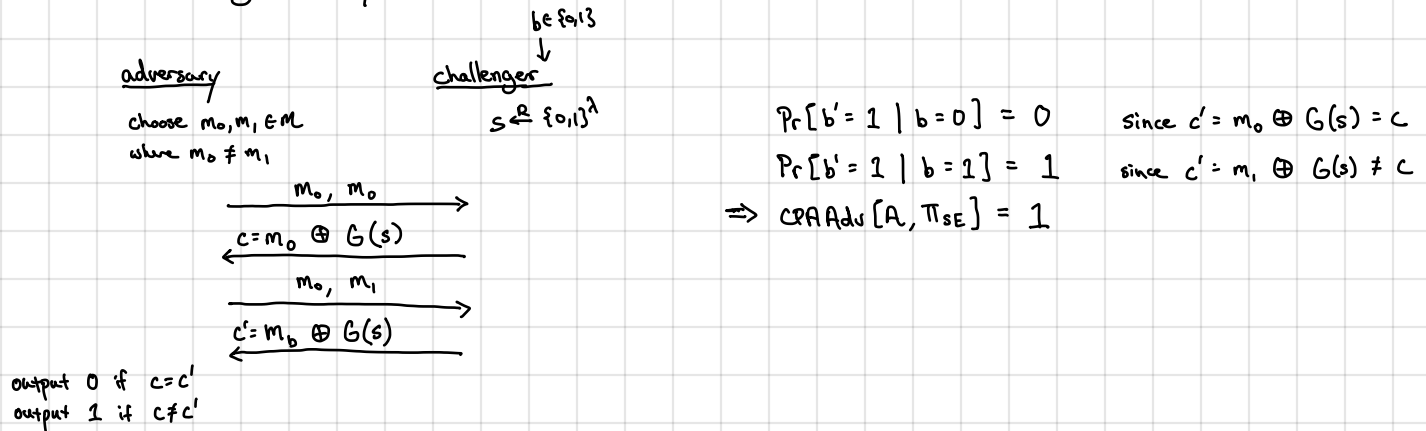 b ∈ {0,1}
adversary
challenger
choose m₀, m₁ ∈ M
where m₀ ≠ m₁
s ←ᴿ {0,1}^λ
m₀, m₀
c = m₀ ⊕ G(s)
m₀, m₁
c' = m_b ⊕ G(s)
output 0 if c = c'
output 1 if c ≠ c'
Pr[b' = 1 | b = 0] = 0 since c' = m₀ ⊕ G(s) = c
Pr[b' = 1 | b = 1] = 1 since c' = m₁ ⊕ G(s) ≠ c
⇒ CPAAdv[A, Π_SE] = 1